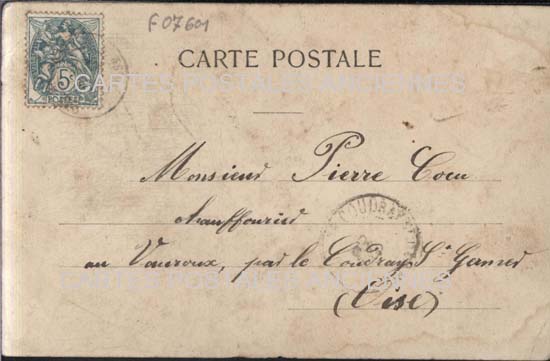 F07601
5
POSTES
CARTE POSTALE
CARTES POSTALES ANCIENNES
Monsieur Pierre
COUDRAY
au Vauroux, par le Coudray St Germer
CARTES POSTALES ANCIENNES
(Oise)